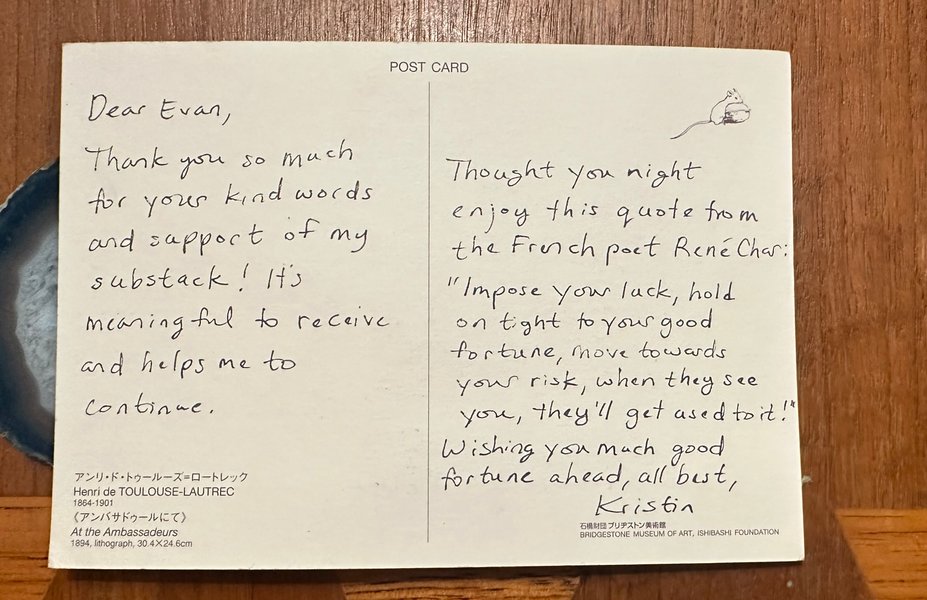 POST CARD
Dear Evan,
Thank you so much
for your kind words
and support of my
substack! It's
meaningful to receive
and helps me to
continue.
アンリ・ド・トゥールーズ=ロートレック
Henri de TOULOUSE-LAUTREC
1864-1901
《アンバサドゥールにて》
At the Ambassadeurs
1894, lithograph, 30.4×24.6cm
Thought you night
enjoy this quote from
the French poet René Char:
"Impose your luck, hold
on tight to your good
fortune, move towards
your risk, when they see
you, they'll get used to it!"
Wishing you much good
fortune ahead, all best,
Kristin
石橋財団ブリヂストン美術館
BRIDGESTONE MUSEUM OF ART, ISHIBASHI FOUNDATION